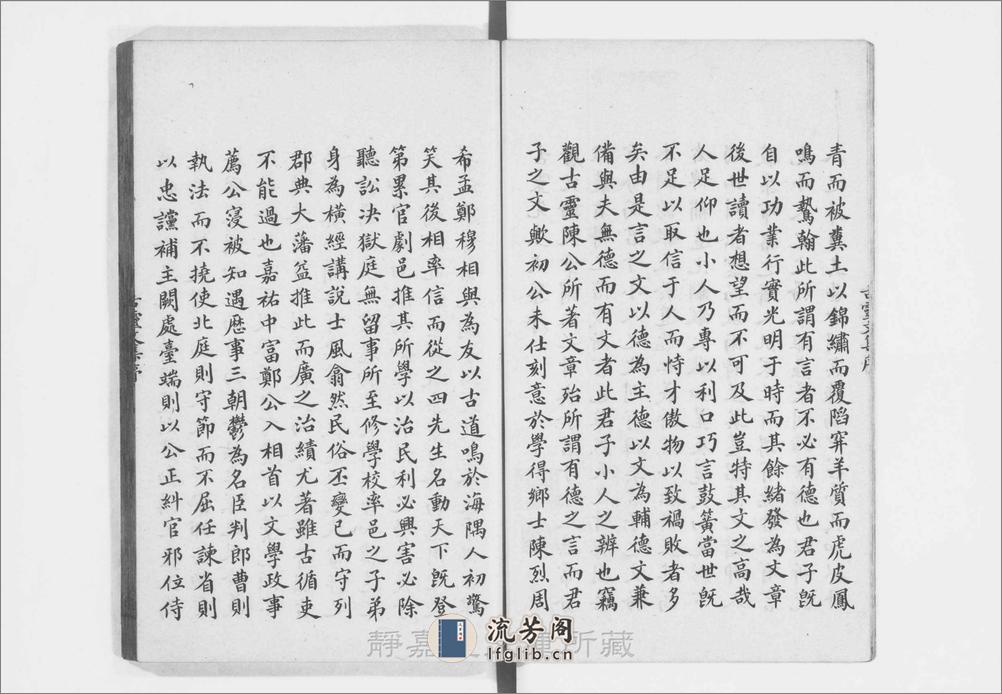 青而被糞土以錦繡而覆陷穽羊質而虎皮鳳
鳴而鷙翰此所謂有言者不必有德也君子旣
自以功業行實光明于時而其餘緒發為文章
後世讀者想望而不可及此豈特其文之高哉
人足仰也小人乃專以利口巧言鼓簧當世旣
不足以取信于人而恃才傲物以致禍敗者多
矣由是言之文以德為主德以文為輔德文兼
備與夫無德而有文者此君子小人之辨也竊
觀古靈陳公所著文章殆所謂有德之言而君
子之文歟初公未仕刻意於學得鄉士陳烈周
希孟鄭穆相與為友以古道鳴於海隅人初驚
笑其後相率信而從之四先生名動天下旣登
第累官劇邑推其所學以治民利必興害必除
聽訟决獄庭無留事所至修學校率邑之子弟
身為橫經講說士風翕然民俗丕變已而守列
郡典大藩益推此而廣之治績尤著雖古循吏
不能過也嘉祐中富鄭公入相首以文學政事
薦公寖被知遇歷事三朝鬱為名臣判郎曹則
執法而不撓使北庭則守節而不屈任諫省則
以忠讜補主闕處臺端則以公正糾官邪位侍
流芳阁
lfglib.cn
靜嘉 所藏